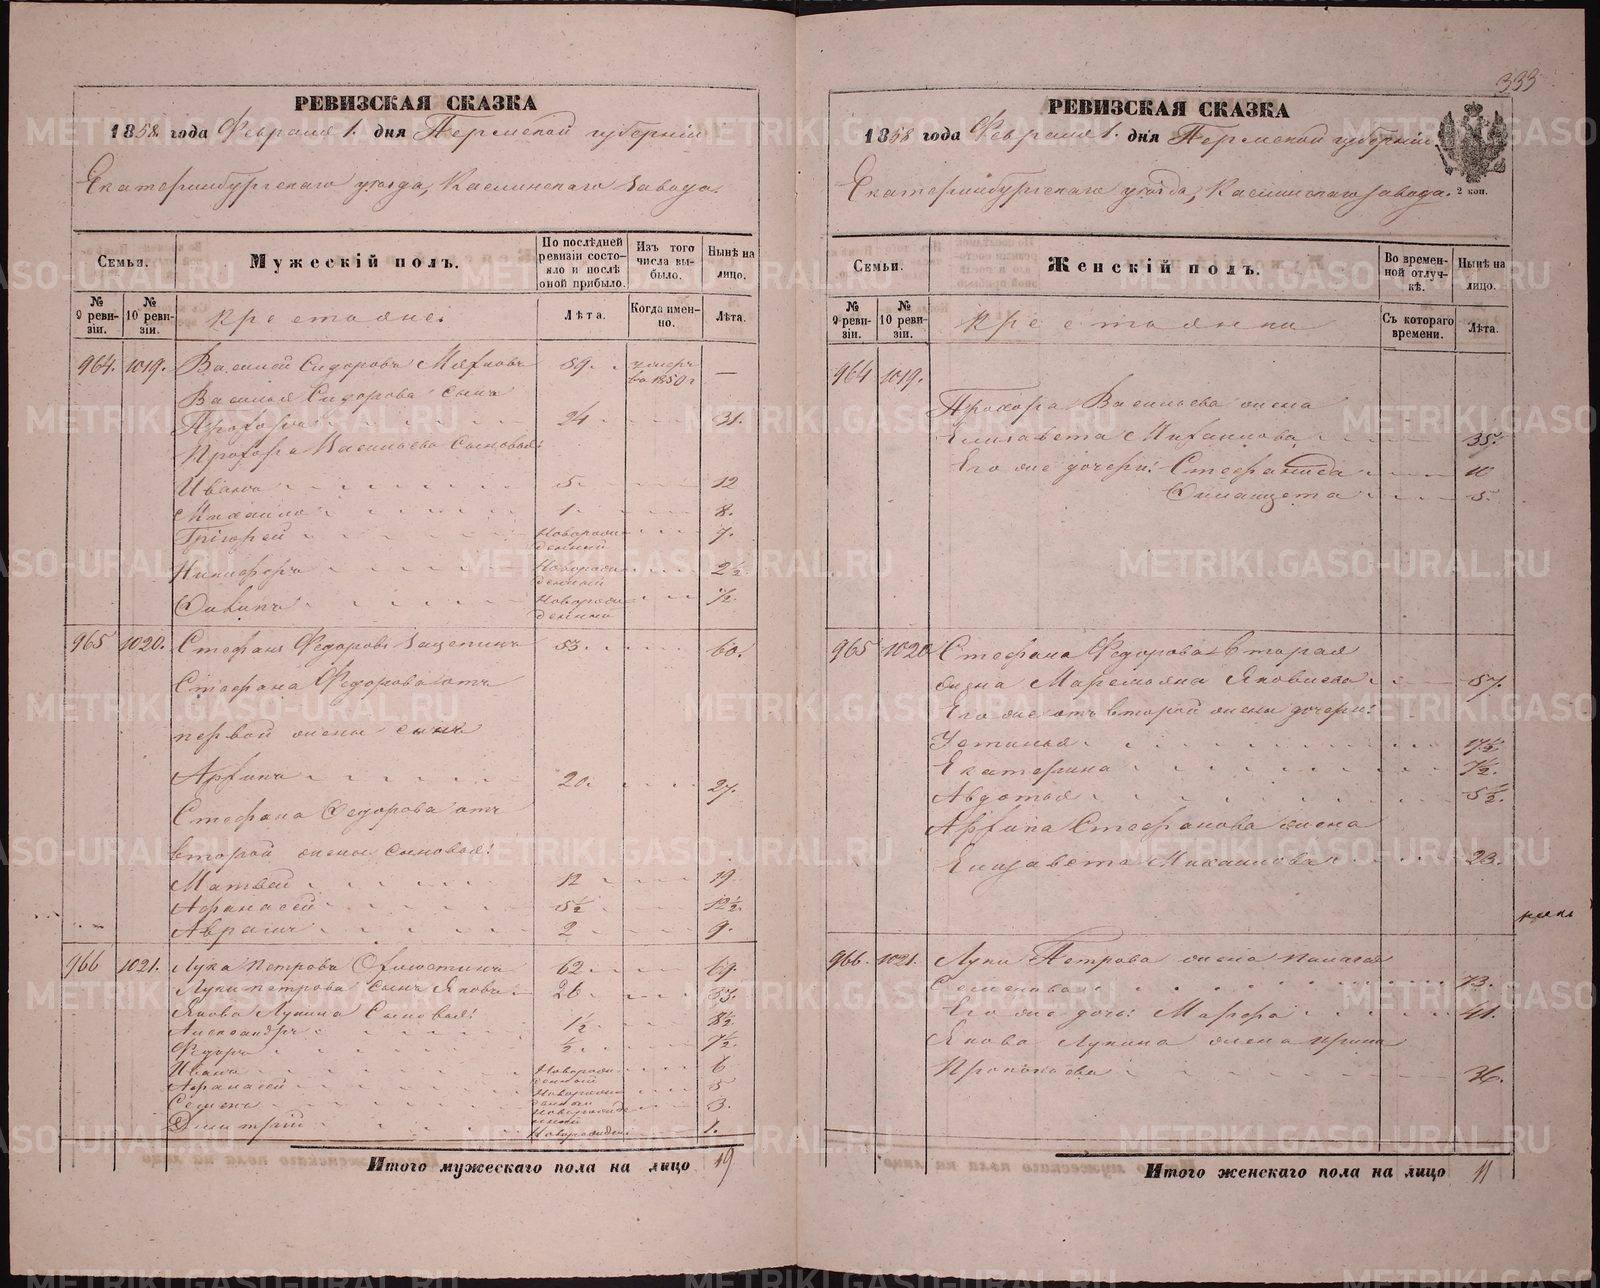 РЕВИЗСКАЯ СКАЗКА
1858 года Февраля 1. дня Пермской губернiи
Екатеринбургскаго уѣзда, Каслинскаго завода.
Семьи.
Мужескiй полъ.
По послѣдней ревизiи состояло и послѣ оной прибыло.
Изъ того числа выбыло.
Нынѣ на лицо.
№ 9 ревизiи.
№ 10 ревизiи.
Крестьяне.
Лѣта.
Когда именно.
Лѣта.
964. 1019. Василей Сидоровъ 59. умеръ въ 1850 г —
Василья Сидорова сынъ
Прохоръ 24 31.
Прохора Васильева сыновья:
Иванъ 5. 12
Михаило 1. 8.
Григорей Новорожденный 7.
Никифоръ Новорожденный 2½
Новорожденный ½.
965 1020. Стефанъ Федоровъ Зацепинъ 53. 60.
Стефана Федорова отъ
первой жены сынъ
Архипъ 20. 27.
Стефана Федорова отъ
второй жены сыновья:
Матвей 12 19
Афанасей 5½ 12½.
Аврамъ 2 9.
966 1021. Лука Петровъ 62 69.
Луки Петрова сынъ Яковъ 26 33.
Якова Лукина сыновья:
Александръ 1½ 8½
Федоръ ½ 7½.
Иванъ Новорожденный 6
Афанасей Новорожденный 5
Семенъ Новорожденный 3.
Дмитрiй Новорожден. 1.
Итого мужескаго пола на лицо 19
333
РЕВИЗСКАЯ СКАЗКА
1858 года Февраля 1. дня Пермской губернiи
2 коп.
Екатеринбургскаго уѣзда, Каслинскаго завода.
Семьи.
Женскiй полъ.
Во временной отлучкѣ.
Нынѣ на лицо.
№ 9 ревизiи.
№ 10 ревизiи.
Крестьянки
Съ котораго времени.
Лѣта.
964 1019.
Прохора Васильева жена
Елизавета Михаилова 35.
Его же дочери: Стефанида 10
5.
965 1020 Стефана Федорова вторая
жена Маремьяна Яковлева 57.
Его же отъ второй жены дочери:
Устинья 17½.
Екатерина 7½.
Авдотья 5½.
Архипа Стефанова жена
Елизавета Михаилова 23.
966. 1021. Луки Петрова жена Палагея
Семенова 73.
Его же дочь: Марфа 41.
Якова Лукина жена Ирина
Прокопьева 36.
Итого женскаго пола на лицо 11
METRIKI.GASO-URAL.RU